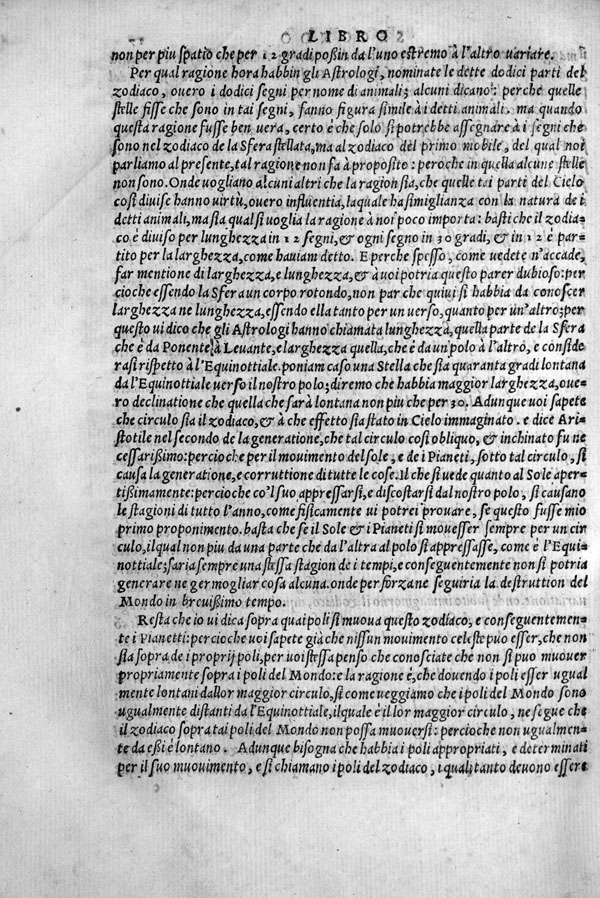 LIBRO
non per piu spatio che per 12 gradi poßin da l'uno estremo à l'altro uariare.
Per qual ragione hora habbin gli Astrologi, nominate le dette dodici parti del
zodiaco, ouero i dodici segni per nome di animali; alcuni dicano: perche quelle
stelle fisse che sono in tai segni, fanno figura simile à i detti animali. ma quando
questa ragione fusse ben uera, certo è che solo si potrebbe assegnare à i segni che
sono nel zodiaco de la Sfera stellata, ma al zodiaco del primo mobile, del qual noi
parliamo al presente, tal ragione non fa à proposito: peroche in quella alcune stelle
non sono. Onde uogliano alcuni altri che la ragion sia, che quelle tai parti del Cielo
cosi diuise hanno uirtù, ouero influentia, laquale ha simiglianza con la natura de i
detti animali, ma sia qual si uoglia la ragione à noi poco importa: basti che il zodia-
co è diuiso per lunghezza in 12 segni, & ogni segno in 30 gradi, & in 12 è par-
tito per la larghezza, come hauiam detto. E perche spesso, come uedete n'accade,
far mentione di larghezza, e lunghezza, & à uoi potria questo parer dubioso: per-
cioche essendo la Sfera un corpo rotondo, non par che quiui si habbia da conoscer
larghezza ne lunghezza, essendo ella tanto per un uerso, quanto per un'altro; per
questo ui dico che gli Astrologi hanno chiamata lunghezza, quella parte de la Sfera
che è da Ponente, à Leuante, e larghezza quella, che è da un polo à l'altro, e conside
rasi rispetto à l'Equinottiale. poniam caso una Stella che sia quaranta gradi lontana
da l'Equinottiale uerso il nostro polo; diremo che habbia maggior larghezza, oue-
ro declinatione che quella che sarà lontana non piu che per 30. Adunque uoi sapete
che circulo sia il zodiaco, & à che effetto sia stato in Cielo immaginato. e dice Ari-
stotile nel secondo de la generatione, che tal circulo cosi obliquo, & inchinato fu ne
cessarißimo: percioche per il mouimento del sole, e de i Pianeti, sotto tal circulo, si
causa la generatione, e corruttione di tutte le cose. Il che si uede quanto al Sole aper-
tißimamente: percioche co'l suo appressarsi, e discostarsi dal nostro polo, si causano
le stagioni di tutto l'anno, come fisicamente ui potrei prouare, se questo fusse mio
primo proponimento. basta che se il Sole & i Pianeti si mouesser sempre per un cir-
culo, ilqual non piu da una parte che da l'altra al polo si appressasse, come è l'Equi-
nottiale; saria sempre una stessa stagion de i tempi, e conseguentemente non si potria
generare ne germogliar cosa alcuna. onde per forzane seguiria la destruttion del
Mondo in breuißimo tempo.
Resta che io ui dica sopra quai poli si muoua questo zodiaco, e conseguentemen-
te i Pianetti: percioche uoi sapete già che nissun mouimento celeste puo esser, che non
sia sopra de i proprij poli, per uoi stessa penso che conosciate che non si puo muouer
propriamente sopra i poli del Mondo: e la ragione è, che douendo i poli esser ugual
mente lontani dal lor maggior circulo, si come ueggiamo che i poli del Mondo sono
ugualmente distanti da l'Equinottiale, ilquale è il lor maggior circulo, ne segue che
il zodiaco sopra tai poli del Mondo non possa muouersi: percioche non ugualmen-
te da eßi è lontano. Adunque bisogna che habbia i poli appropriati, e determinati
per il suo muouimento, e si chiamano i poli del zodiaco, i quali tanto deuono essere